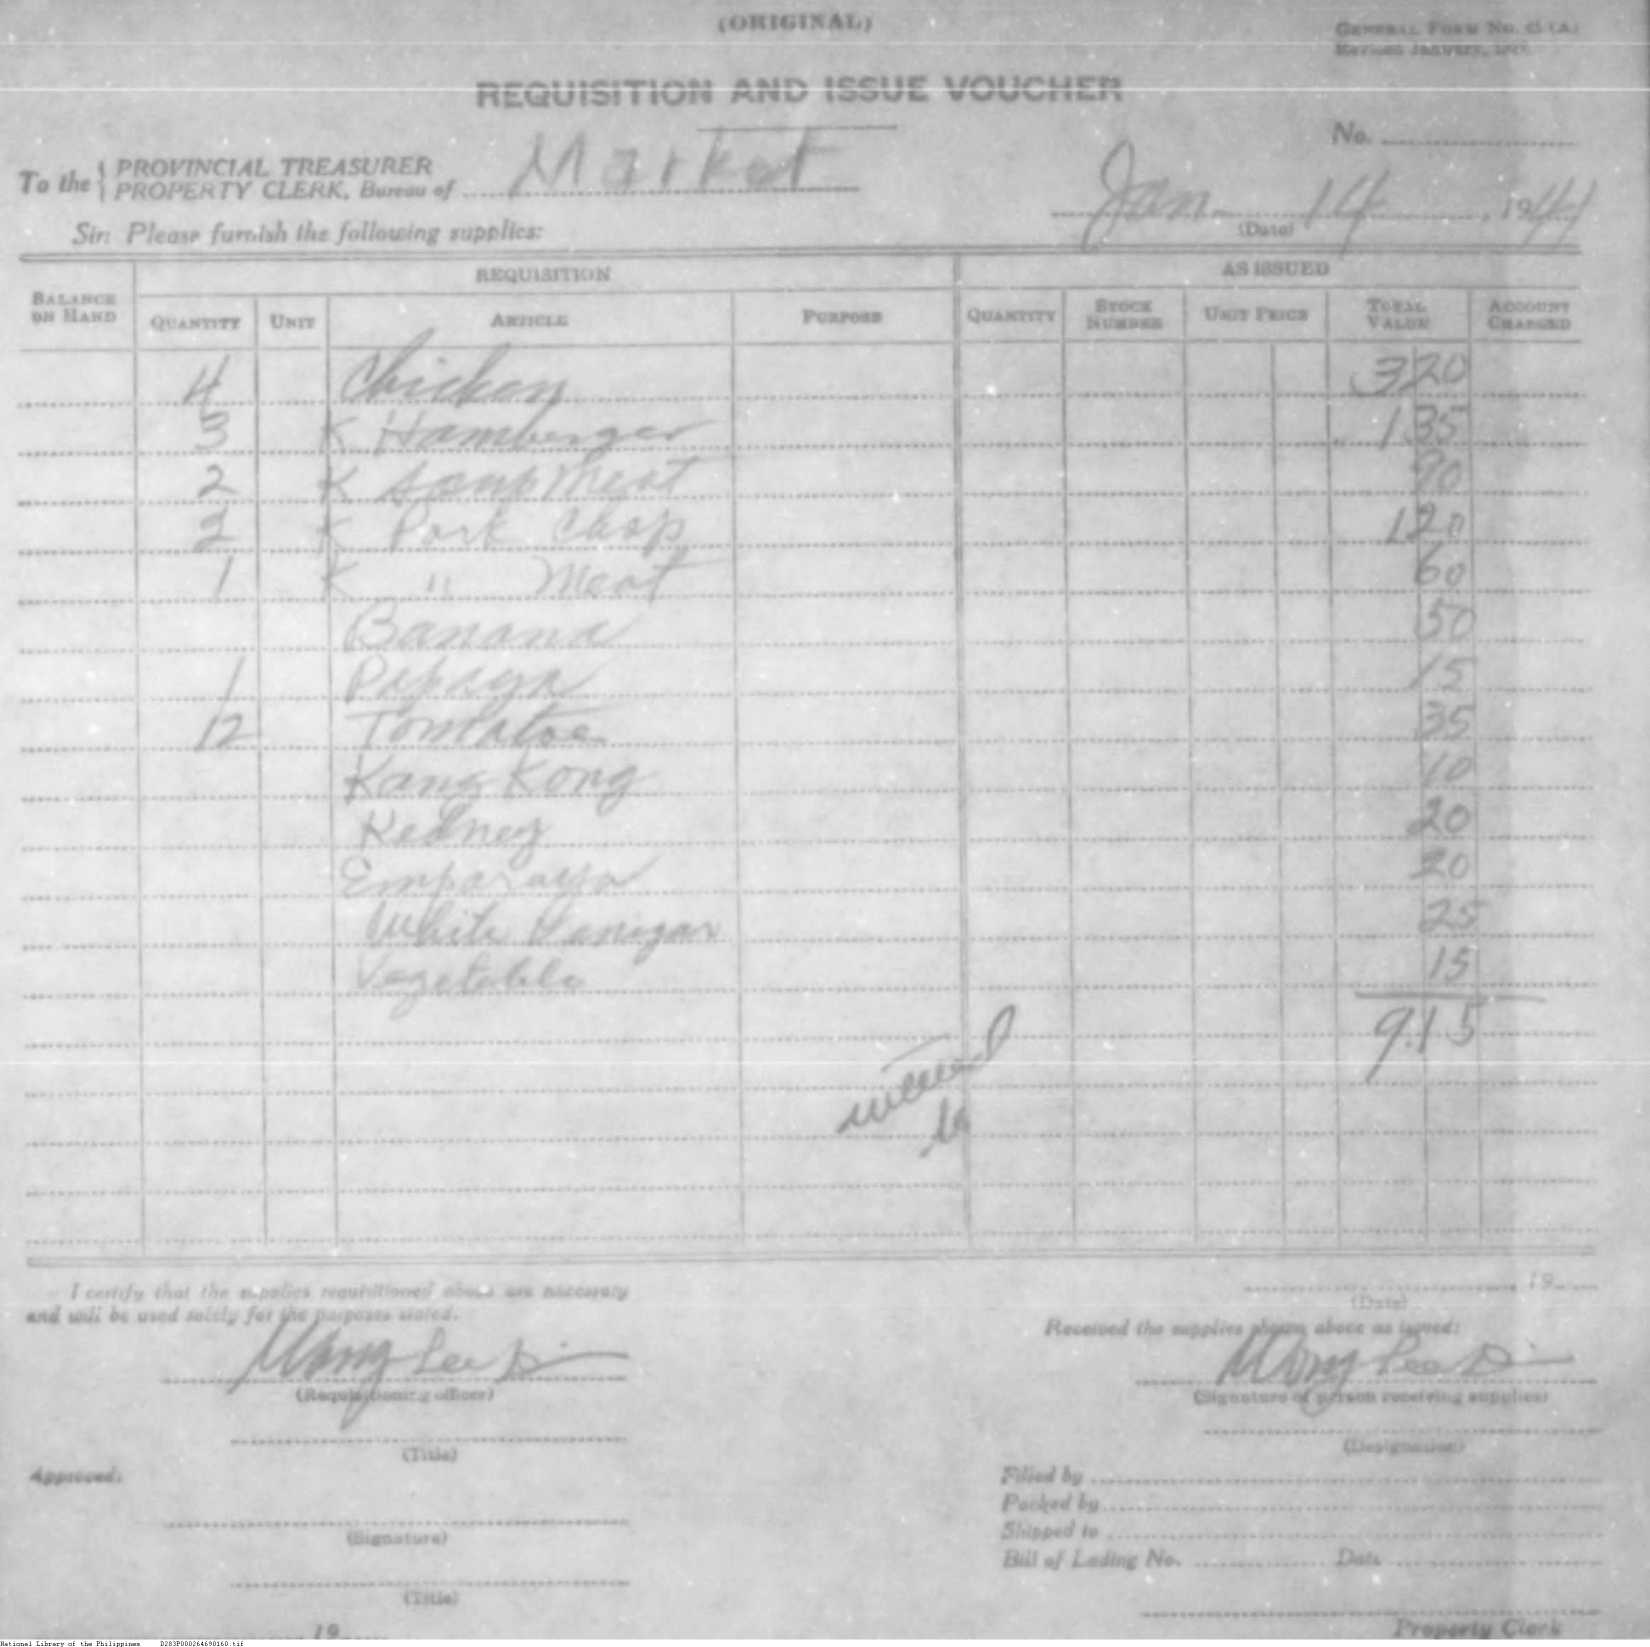 (ORIGINAL)
GENERAL FORM No. 45 (A)
Revised January,
REQUISITION AND ISSUE VOUCHER
No.
To the { PROVINCIAL TREASURER
PROPERTY CLERK, Bureau of Market
Jan 14, 1941
(Date)
Sir: Please furnish the following supplies:
REQUISITION AS ISSUED
BALANCE ON HAND QUANTITY UNIT ARTICLE PURPOSE QUANTITY STOCK NUMBER UNIT PRICE TOTAL VALUE ACCOUNT CHARGED
4 Chicken 3 20
3 K Hamberger 1 35
2 K Soup Meat 90
2 K Pork Chop 1 20
1 K " Meat 60
Banana 50
1 Papaya 15
12 Tomatoe 35
Kang Kong 10
Kedney 20
Emparaya 20
White Vanigar 25
Vegetable 15
9.15
I certify that the supplies requisitioned above are necessary
and will be used solely for the purposes stated.
, 19
(Date)
Received the supplies shown above as issued:
Wong
(Requisitioning officer)
Wong
(Signature of person receiving supplies)
(Title)
(Designation)
Approved:
Filled by
Packed by
(Signature)
Shipped to
Bill of Lading No. Date
(Title)
19
Property Clerk
National Library of the Philippines D283P000264690160.tif